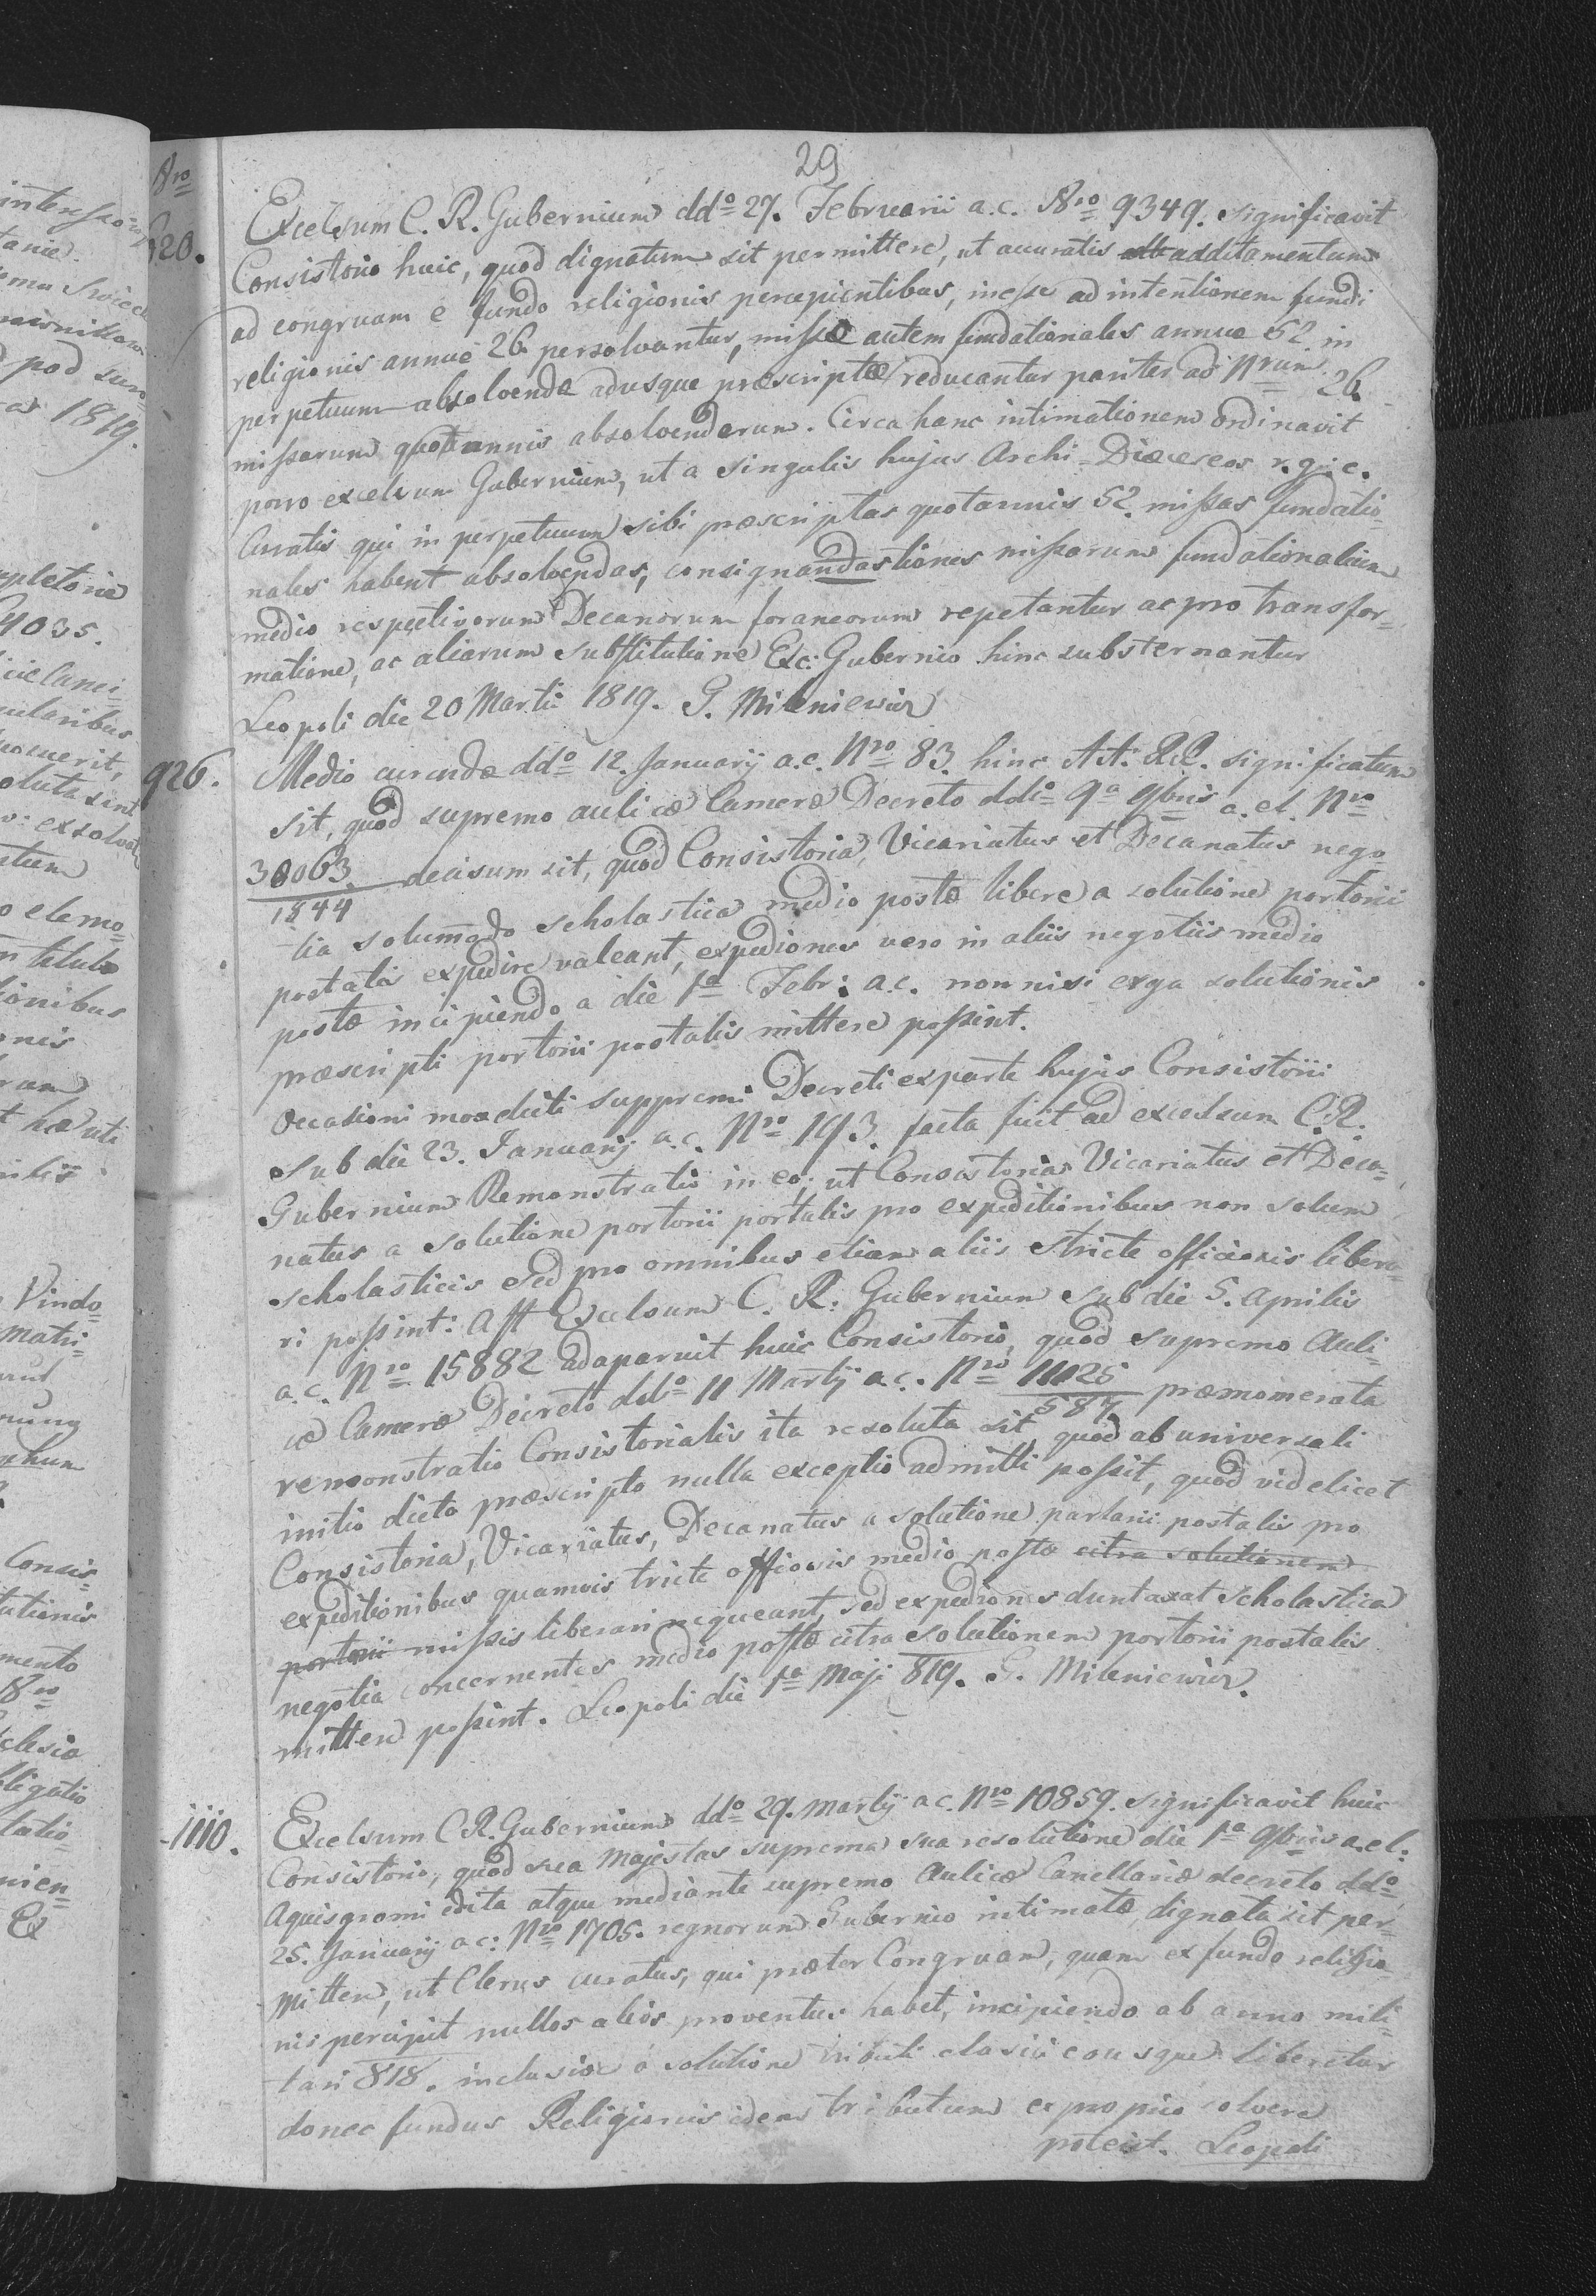 29
Nro
520.
Excelsum C. R. Gubernium ddo 27. Februarii a.c. Nro 9349. significavit
Consistorio huic, quod dignatum sit permittere, ut curatis additamentum
ad congruam e fundo religionis percipientibus, inesse ad intentionem fundi
religionis annue 26 persolvantur, missæ autem fundationales annue 52 in
perpetuum absolvendæ adusque præscriptæ reducantur pariter ad Nrum 26
missarum quotannis absolvendarum. Circa hanc intimationem ordinavit
porro excelsum Gubernium, ut a singulis hujus Archi-Dioeceseos r.g.c.
Curatis qui in perpetuum sibi præscriptas quotannis 52. missas fundatio=
nales habent absolvendas, consignandastiones missarum fundationalium
medio respectivorum Decanorum foraneorum repetantur ac pro transfor=
matione, ac aliarum substitutione Exc: Gubernio hinc substernantur
Leopoli die 20 Martii 1819. G. Mileniewicz
926.
Medio currendæ ddo 12. January a.c. Nro 83. hinc AA. RR. significatum
sit, quod supremo aulicæ Cameræ Decreto ddto 9a 9bris a. el. Nro
38063/1844 decisum sit, quod Consistoria, Vicariatus et Decanatus nego=
tia solummodo scholastica medio postæ libere a solutione portorii
postalis expedire valeant, expediones vero in aliis negotiis medio
postæ incipiendo a die 1a Febr: a.c. non nisi erga solutionis
præscripti portorii postalis mittere possint.
Occasioni moxdicti suppremi Decreti exparte hujus Consistorii
sub die 23. January a.c. Nro 193. facta fuit ad excelsum C.R.
Gubernium Remonstratio in eo, ut Consistoria Vicariatus et Deca=
natus a solutione portorii portalis pro expeditionibus non solum
scholasticis sed pro omnibus etiam aliis stricte officiosis libera=
ri possint: Ast Excelsum C. R. Gubernium sub die 5. Aprilis
a.c. Nro 15882 adaparuit huic Consistorio, quod supremo Auli=
cæ Cameræ Decreto ddto 11 Martij a.c. Nro 11025/587 præmomerata
remonstratio Consistorialis ita resoluta sit, quod ab universali
initio dicto præscripto nulla exceptio admitti possit, quod videlicet
Consistoria, Vicariatus, Decanatus a solutione portorii postalis pro
expeditionibus quamvis tricte officiosis medio postæ citra solutionem
portorii missis liberari nequeant, sed expediones duntaxat scholastica
negotia concernentes medio postæ citra solutionem portorii postalis
mittere possint. Leopoli die 1a Maji 819. G. Mileniewicz.
1110.
Excelsum C R. Gubernium ddo 29. Martij a c. Nro 10859. significavit huic
Consistorio, quod sua Majestas suprema sua resolutione die 1a 9bris a. el.
Aquisgrami edita atque mediante supremo Aulicæ Canellariæ decreto ddo
25. January a c: Nro 1705. regnorum Gubernio intimatæ dignata sit per=
mittere, ut Clerus curatus, qui præter Congruam, quam ex fundo religio=
nis percipit nullos alios proventus habet, incipiendo ab anno mili=
tari 818. inclusive a solutione tributi clasici eousque liberetur
donec fundus Religionis idem tributum e proprio solvere
poterit. Leopoli